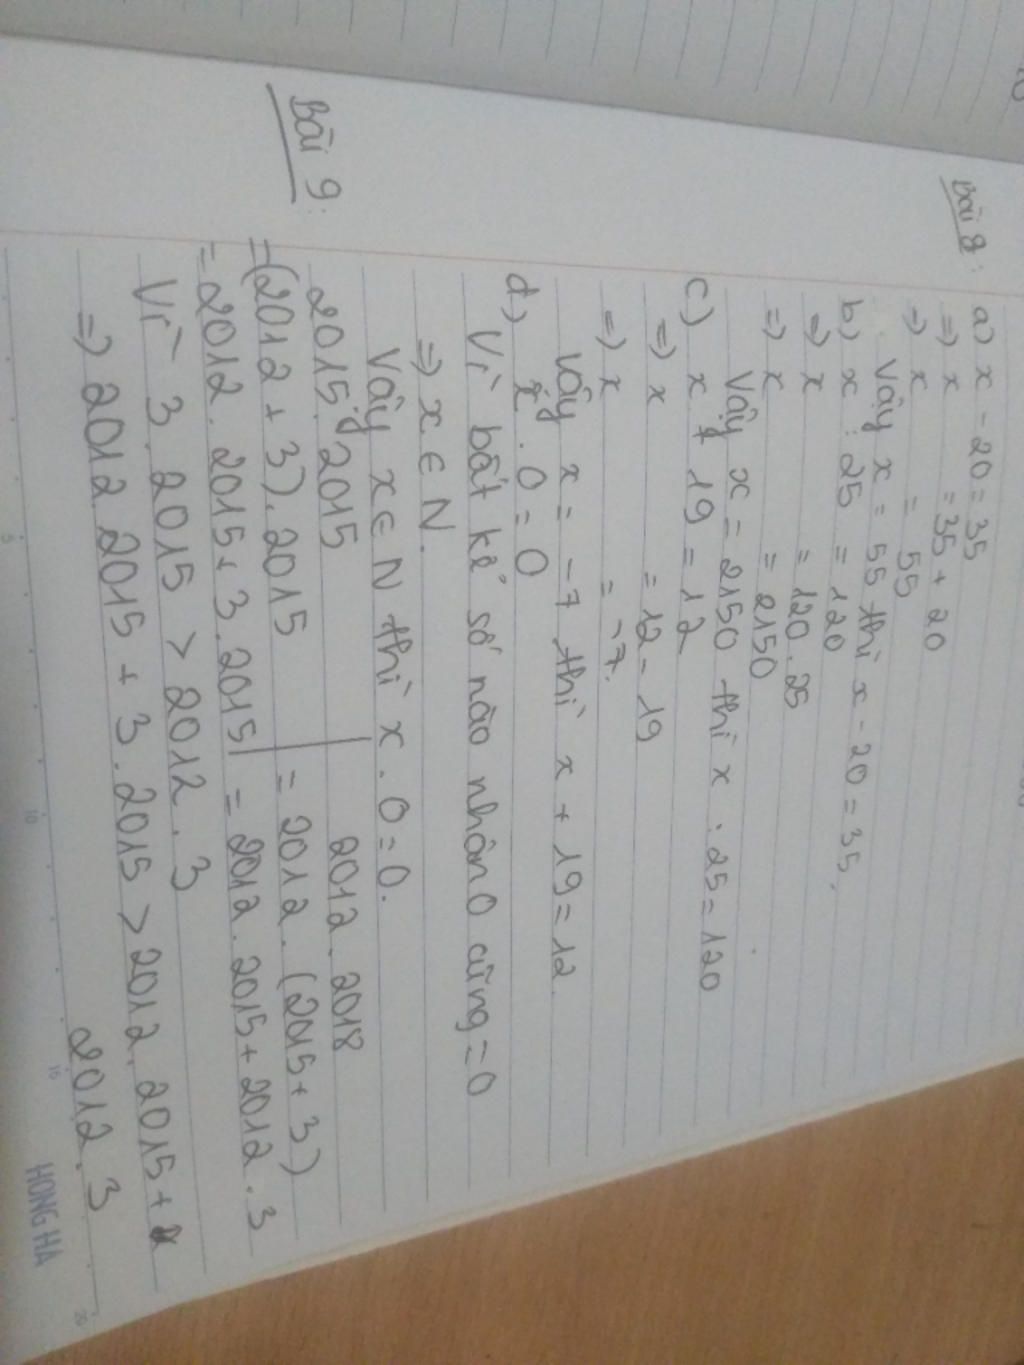 Bài 8:
a) x - 20 = 35
=> x = 35 + 20
=> x = 55
Vậy x = 55 thì x - 20 = 35.
b) x : 25 = 120
=> x = 120 . 25
=> x = 2150
Vậy x = 2150 thì x : 25 = 120
c) x + 19 = 12
=> x = 12 - 19
=> x = -7.
Vậy x = -7 thì x + 19 = 12.
d) x . 0 = 0
Vì bất kể số nào nhân 0 cũng = 0
=> x ∈ N.
Vậy x ∈ N thì x . 0 = 0.
Bài 9:
2015 . 2015 2012 . 2018
= (2012 + 3) . 2015 = 2012 . (2015 + 3)
= 2012 . 2015 + 3 . 2015 = 2012 . 2015 + 2012 . 3
Vì 3 . 2015 > 2012 . 3
=> 2012 . 2015 + 3 . 2015 > 2012 . 2015 +
2012 . 3
5 10 15 20
HONG HA